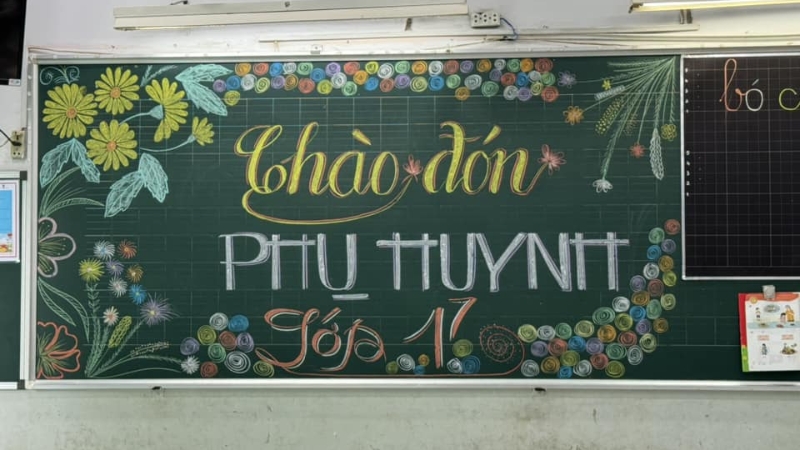 Chào đón
PHỤ HUYNH
Lớp 1
bó c